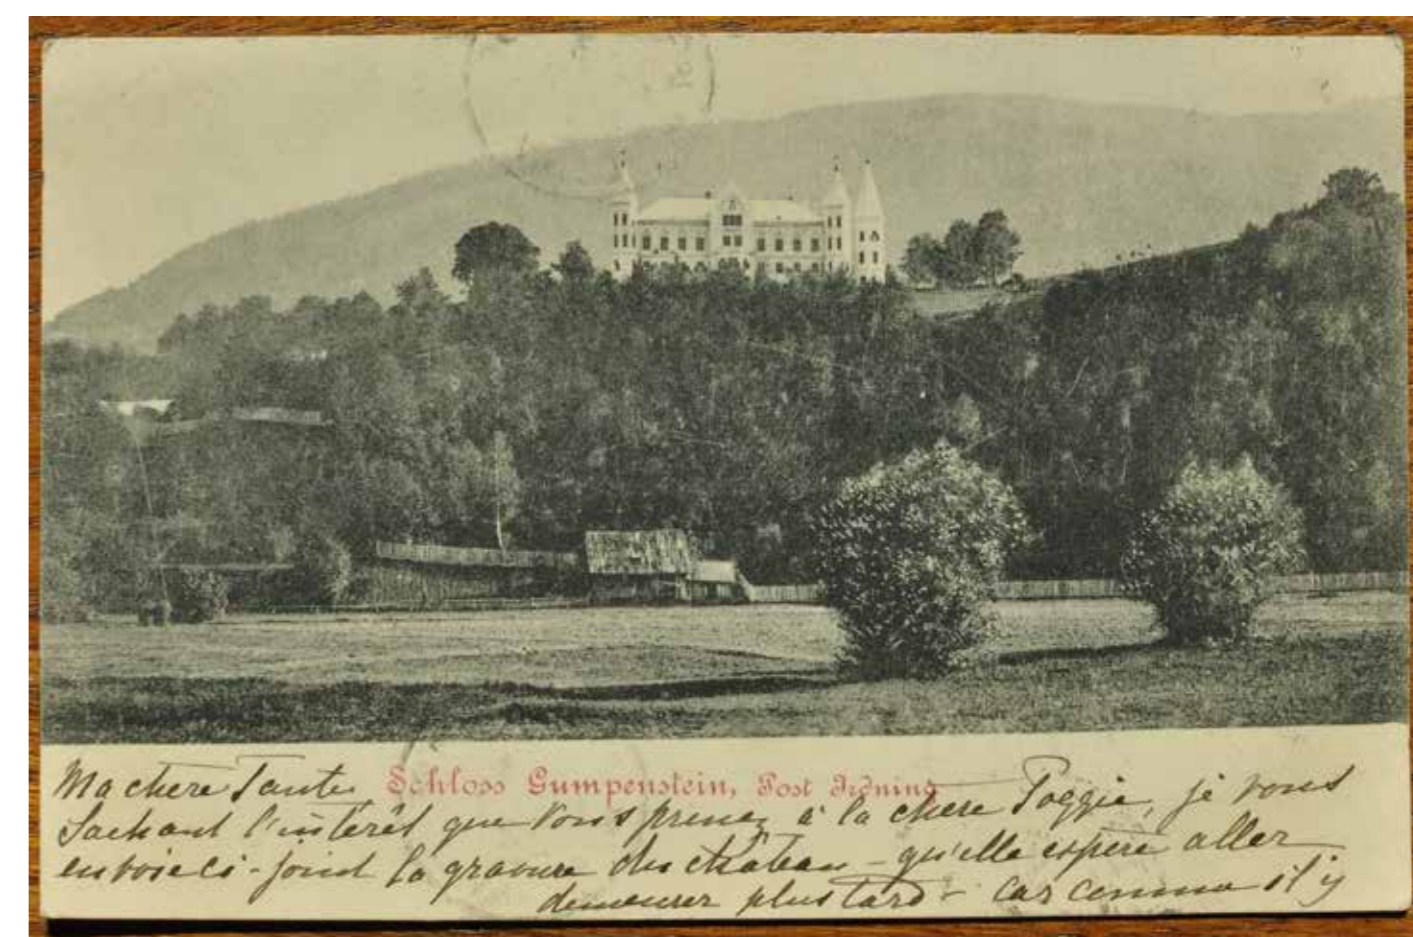 Schloss Gumpenstein, Post Irdning
Ma chere Tante
Sachant l'intérêt que vous prenez à la chere Poggie, je vous
envoie ci-joint la gravure du château - qu'elle espère aller
demeurer plus tard - car comme il y